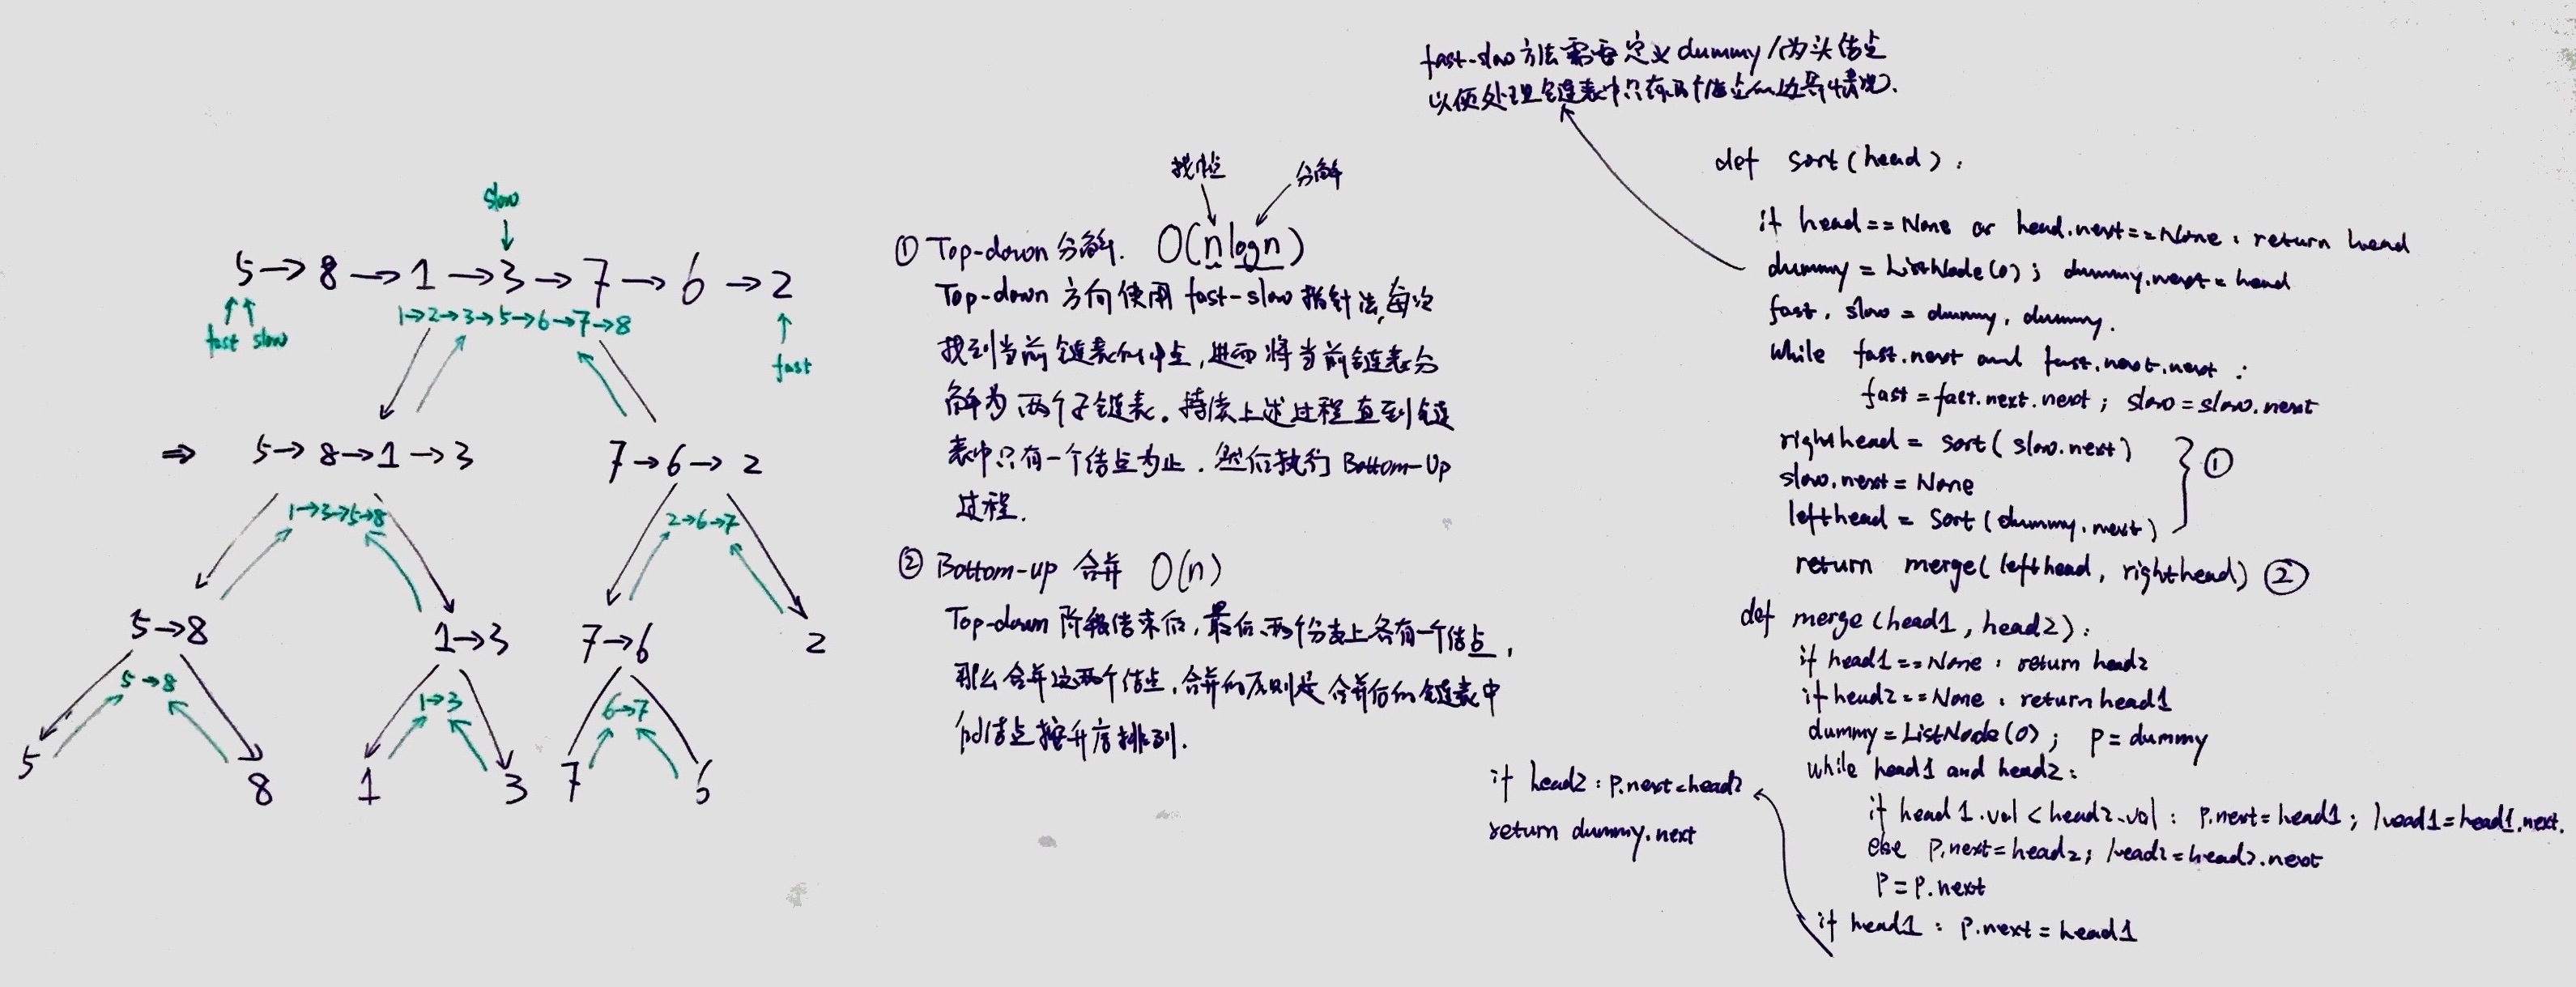 slow
5→8→1→3→7→6→2
1→2→3→5→6→7→8
fast slow
fast
⇒ 5→8→1→3
7→6→2
1→3→5→8
2→6→7
5→8
1→3
7→6
2
5→8
1→3
6→7
5
8
1
3
7
6
找中点
分解
① Top-down 分解. O(nlogn)
Top-down 方向使用 fast-slow 指针法,每次
找到当前链表的中点,进而将当前链表分
解为两个子链表。持续上述过程直到链
表中只有一个结点为止. 然后执行 Bottom-Up
过程.
② Bottom-up 合并 O(n)
Top-down 阶段结束后,最后两个分支上各有一个结点,
那么合并这两个结点,合并的原则是合并后的链表中
的结点按升序排列.
fast-slow 方法需要定义 dummy/伪头结点
以便处理链表中只有两个结点的边界情况.
def sort(head):
if head==None or head.next==None: return head
dummy = ListNode(0); dummy.next = head
fast, slow = dummy, dummy.
while fast.next and fast.next.next :
fast = fast.next.next; slow = slow.next
righthead = sort(slow.next)
slow.next = None
①
lefthead = sort(dummy.next)
return merge(lefthead, righthead) ②
def merge(head1, head2):
if head1 == None : return head2
if head2 == None : return head1
dummy = ListNode(0); p = dummy
while head1 and head2:
if head1.val < head2.val : p.next = head1; head1 = head1.next.
else p.next = head2; head2 = head2.next
p = p.next
if head1 : p.next = head1
if head2 : p.next = head2
return dummy.next